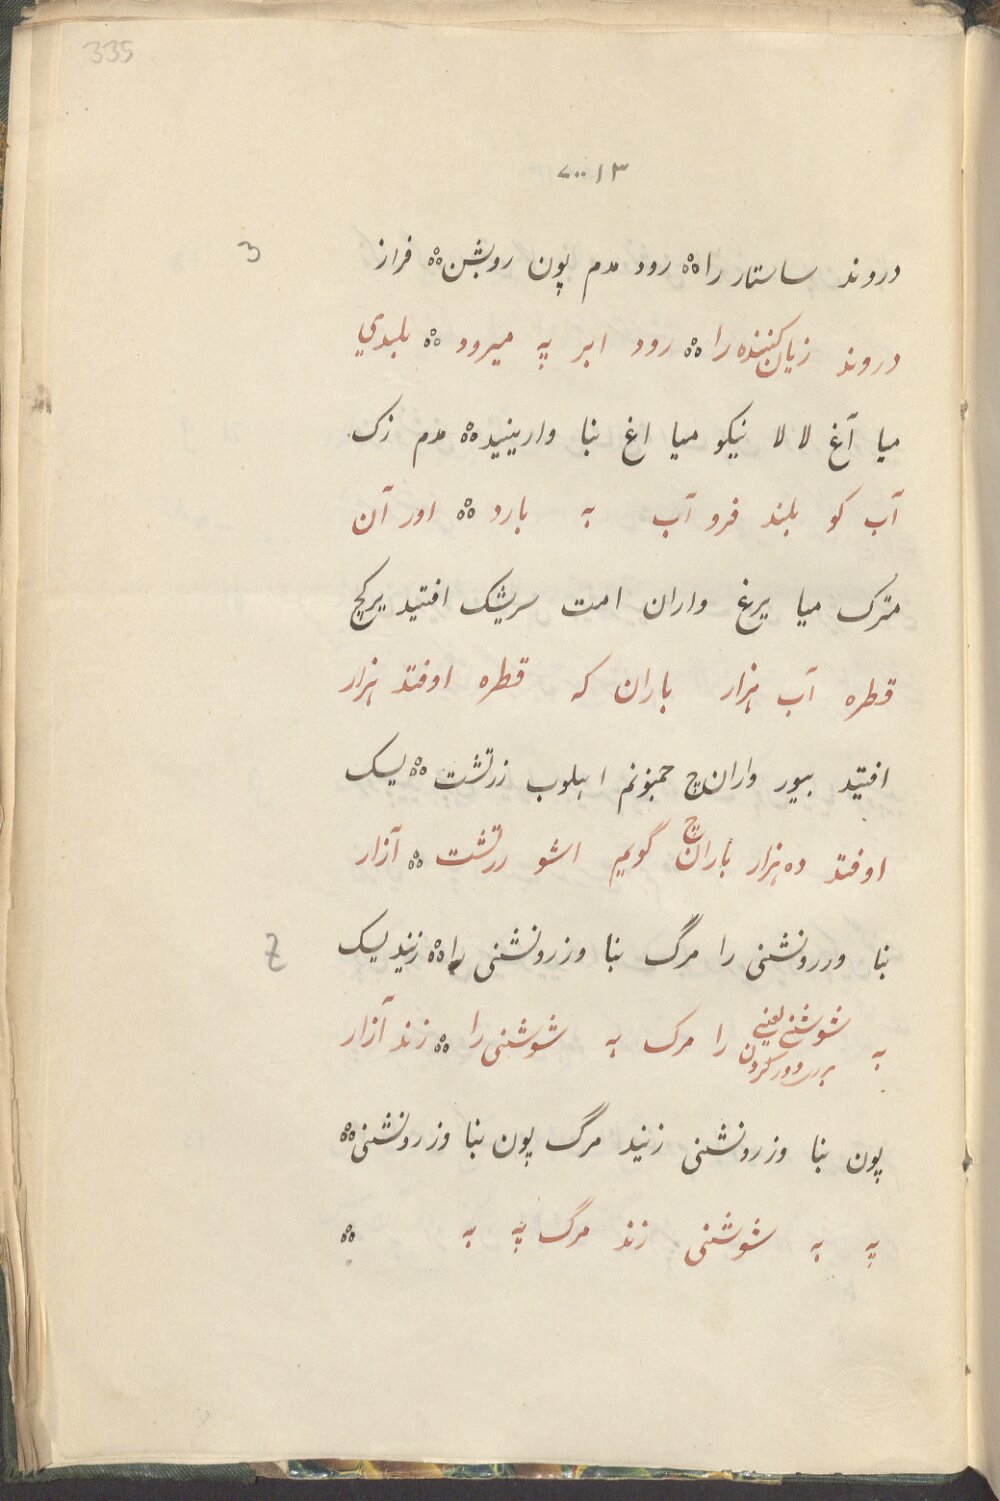 335
۱۳
3
دروند ساستار را ⁘ رود مدم پون روبشن ⁘ فراز
دروند زیان‌کننده را ⁘ رود ابر په میرود ⁘ بلبدي
میا آغ لا لا نیکو میا اغ بنا وارینید ⁘ مدم زک
آب کو بلند فرو آب به بارد ⁘ اور آن
مترک میا یرغ واران امت سریشک افتید یرکچ
قطره آب هزار باران که قطره اوفتد هزار
افتید بیور واران‌چ اهلوب زرتشت ⁘ یسک
اوفتد ده هزار باران‌چ گویم اشو زرتشت ⁘ آزار
بنا وررونشنی را مرگ بنا وزرونشنی را ⁘ زنید یسک
به شوشنی یعنی دور کردن را مرک به شوشنی را ⁘ زند آزار
پون بنا وزرونشنی زنید مرگ پون بنا وزرونشنی ⁘
په به شوشنی زند مرگ په به ⁘